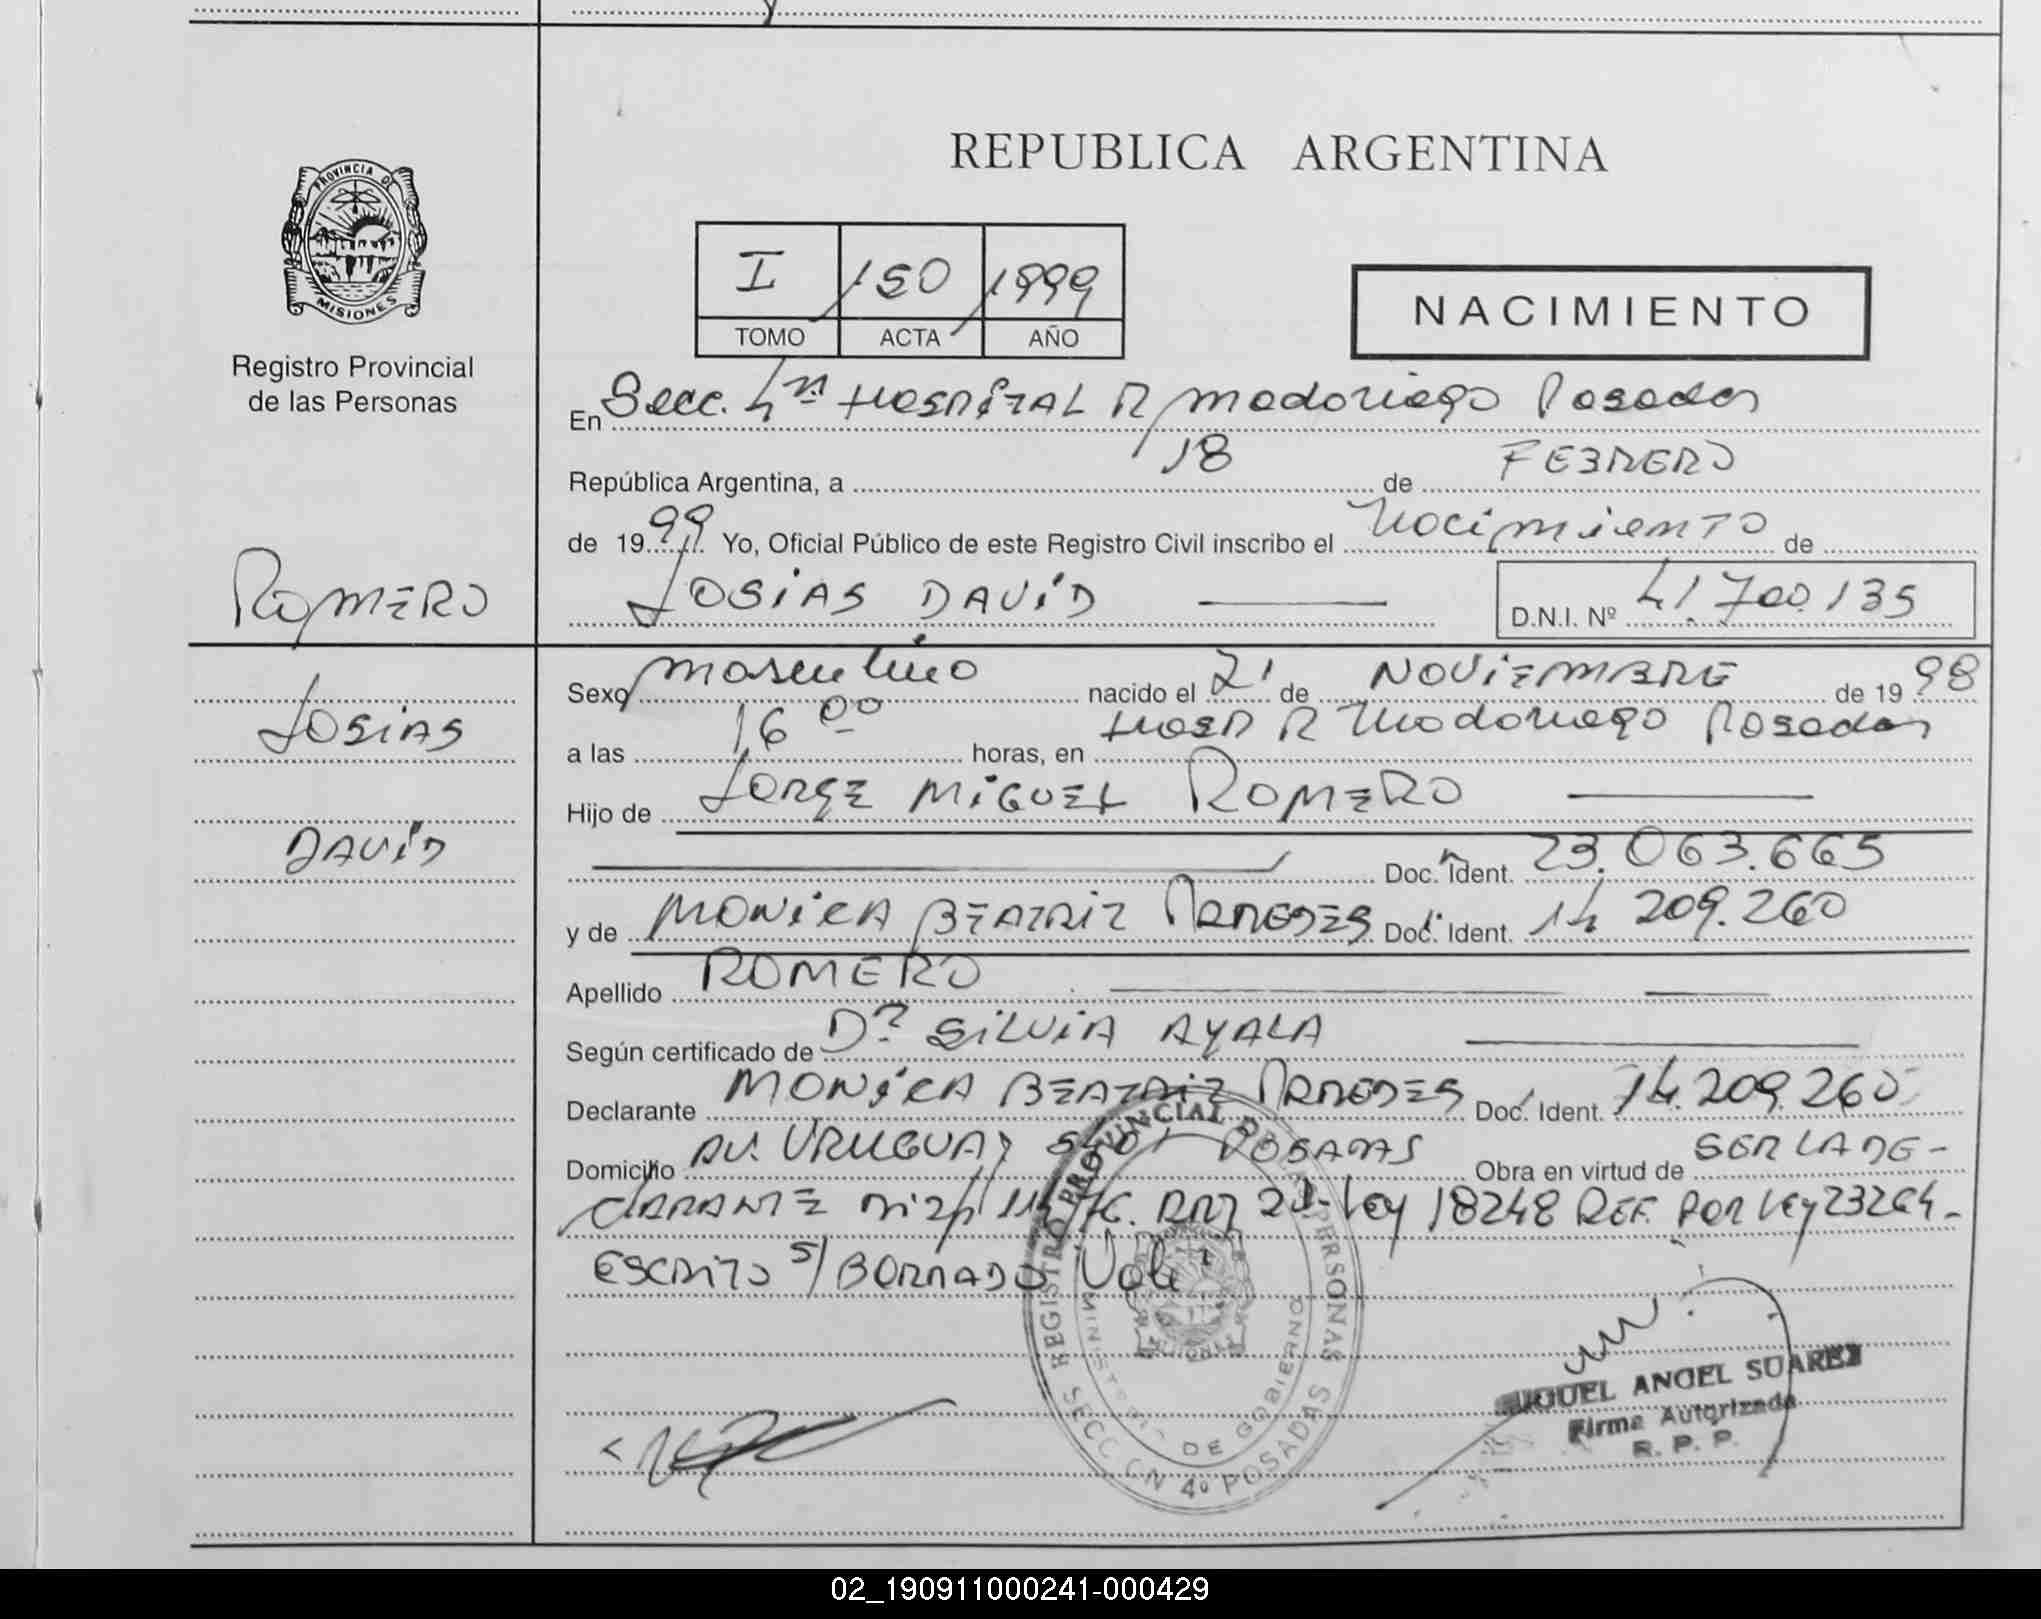 PROVINCIA DE
MISIONES
Registro Provincial
de las Personas
ROMERO
JOSIAS
DAVID
REPUBLICA ARGENTINA
I 150 1999
TOMO ACTA AÑO
NACIMIENTO
En Secc. 4ta HOSPITAL R Madariaga Posadas
República Argentina, a 18 de FEBRERO
de 1999 Yo, Oficial Público de este Registro Civil inscribo el Nacimiento de
JOSIAS DAVID D.N.I. Nº 41.700.135
Sexo masculino nacido el 21 de NOVIEMBRE de 1998
a las 16 00 horas, en HOSP R Madariaga Posadas
Hijo de JORGE MIGUEL ROMERO
Doc. Ident. 23.063.665
y de MONICA BEATRIZ PAREDES Doc. Ident. 14 209.260
Apellido ROMERO
Según certificado de Dra SILVIA AYALA
Declarante MONICA BEATRIZ PAREDES Doc. Ident. 14.209.260
Domicilio AV. URUGUAY POSADAS Obra en virtud de SER LA DE-
CLARANTE Ley 18248 REF. POR Ley 23264-
ESCRITO S/ BORRADO Vale
REGISTRO PROVINCIAL DE LAS PERSONAS
MINISTERIO DE GOBIERNO
SECCION 4º POSADAS
MIGUEL ANGEL SUAREZ
Firma Autorizada
R. P. P.
02_190911000241-000429